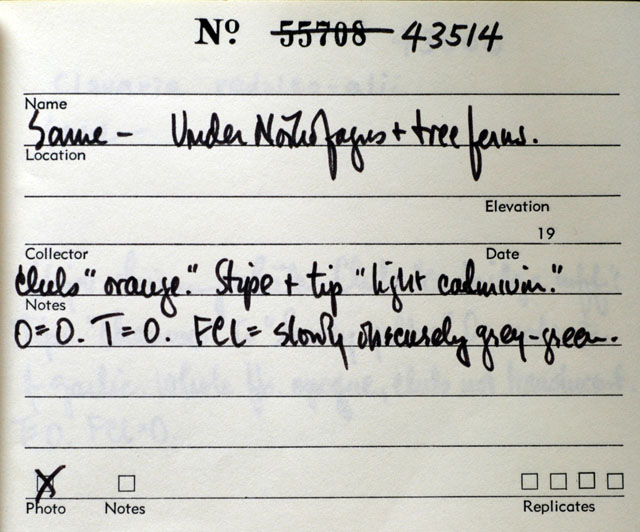 Nº 55708 43514
Name
Same - Under Nothofagus + tree ferns.
Location
Elevation
19
Collector Date
clubs "orange." Stipe + tip "light cadmium."
Notes
O=O. T=O. FCL= slowly obscurely grey-green.
Photo Notes Replicates